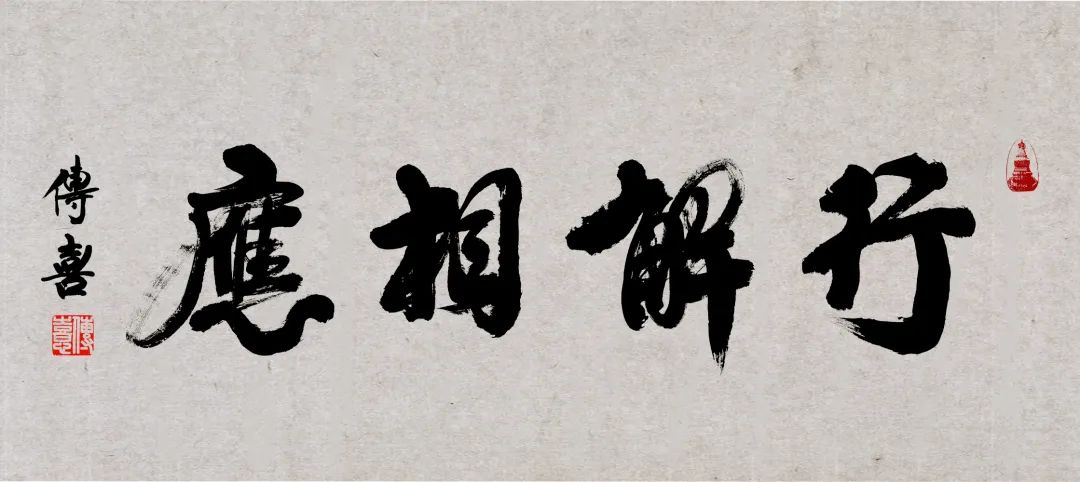 行解相應
傳喜
傳喜